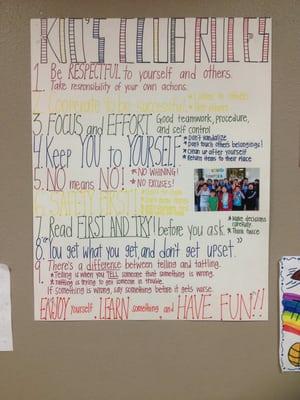 KID'S CLUB RULES
1. Be RESPECTFUL to yourself and others.
Take responsibility of your own actions.
2. Cooperate to be successful. * Listen to others
3. FOCUS and EFFORT Good teamwork, procedure,
and self control
4. Keep YOU to YOURSELF. * Don't vandalize
* Don't touch others belongings!
* Clean up after yourself
* Return items to their place
5. NO means NO! * NO WHINING!
* NO EXCUSES!
6. SAFETY FIRST!
* Make decisions
carefully.
* Think twice
7. Read FIRST AND TRY before you ask.
8. "You get what you get, and don't get upset."
9. There's a difference between telling and tattling.
* Telling is when you TELL someone that something is wrong.
* Tattling is trying to get someone in trouble.
If something is wrong, say something before it gets worse.
ENJOY yourself, LEARN something and HAVE FUN!!